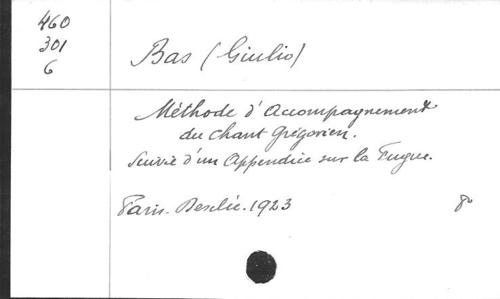 460
301
6
Bas (Giulio)
Méthode d'Accompagnement
du chant grégorien.
Suivie d'un Appendice sur la Fugue.
Paris. Desclée. 1923
8º